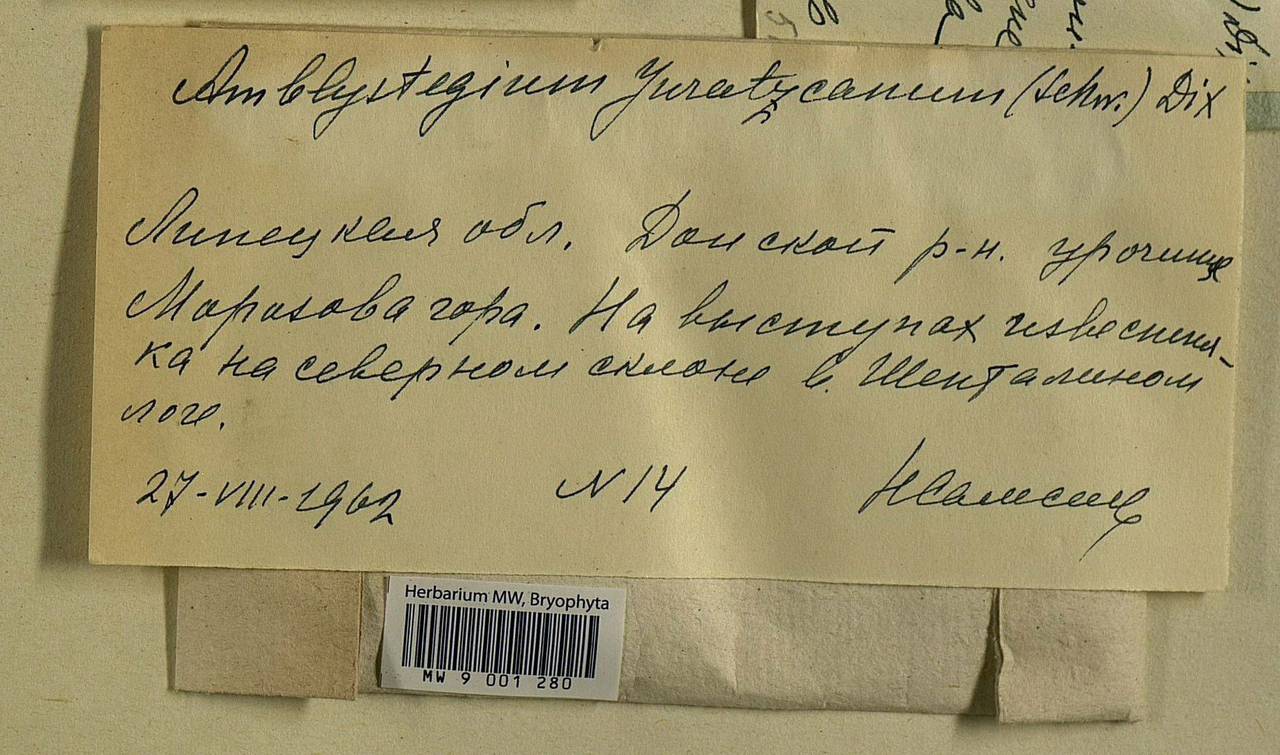 Amblystegium Juratzcanum (Schw.) Dix
Липецкая обл. Донской р-н. урочище
Морозова гора. На выступах известня-
ка на северном склоне в. Шенталином
логе.
27-VIII-1962 N 14
Herbarium MW, Bryophyta
MW 9 001 280